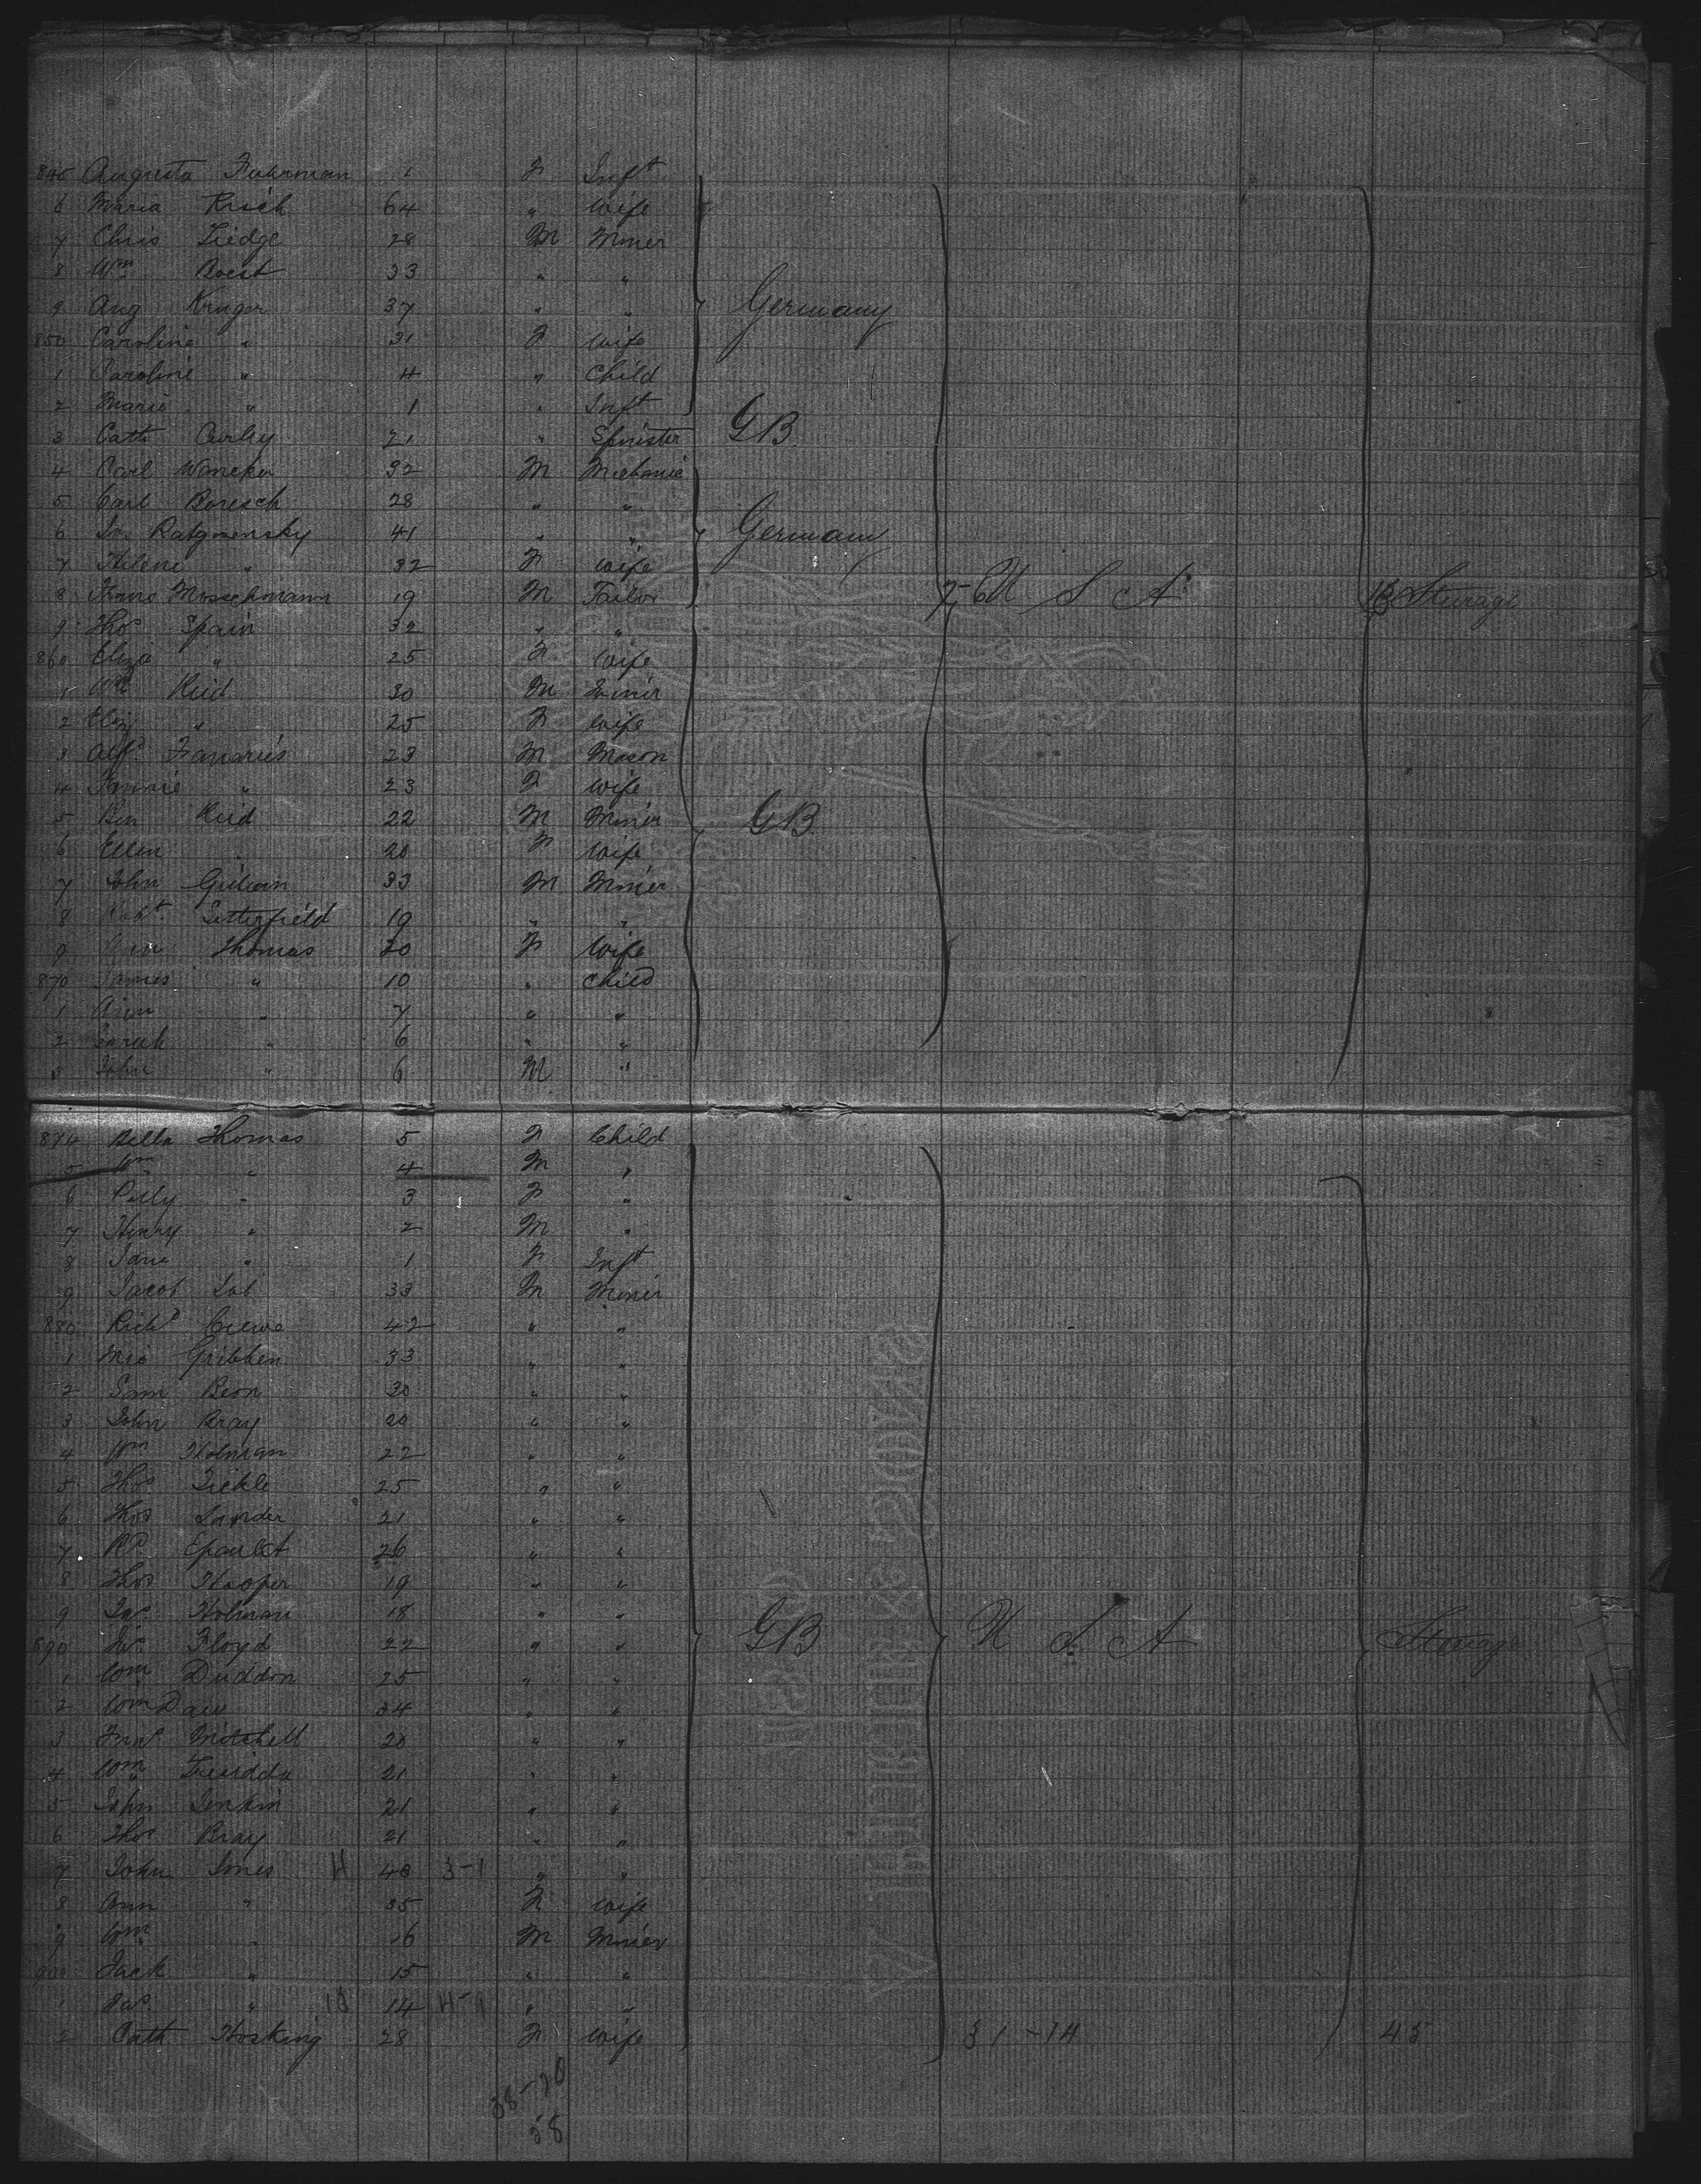 845 Augusta Fuhrman 1 F Inft
6 Maria Risch 64 " Wife
7 Chris Tiedge 28 M Miner
8 Wm Boest 33 " "
9 Aug Kruger 37 " " Germany
850 Caroline " 31 F Wife
1 Caroline " 4 " Child
2 Marie " 1 " Inft
3 Cath Curley 21 " Spinster GB
4 Carl 32 M Mechanic
5 Carl Boresch 28 " "
6 41 " " Germany
7 Helene " 32 F Wife
8 Franz Moschmann 19 M Tailor U S A Steerage
9 Thos Spain 32 " "
860 Eliza " 25 F Wife
1 Wm Reid 30 M
2 Eliz " 25 F Wife
3 Alfd 23 M Mason
4 Fannie " 23 F Wife
5 Ben Reid 22 M Miner GB
6 Ellen 20 F Wife
7 John 33 M Miner
8 Robt Setterfield 19 " "
9 Ann Thomas 30 F Wife
870 James " 10 " Child
1 Ann " 7 " "
2 Sarah " 6 " "
3 John " 6 M "
874 Bella Thomas 5 F Child
5 Wm " 4 M "
6 Polly " 3 F "
7 Henry " 2 M "
8 Jane " 1 F Inft
9 Jacob 33 M Miner
880 Richd Crewe 42 " "
1 Gribben 33 " "
2 Sam 30 " "
3 John Bray 20 " "
4 Wm Holman 22 " "
5 Thos Tickle 25 " "
6 Thos Lander 21 " "
7 26 " "
8 Thos Hooper 19 " "
9 Jas Holman 18 " "
890 Floyd 22 " " GB U S A Steerage
1 Wm Duddon 25 " "
2 Wm Daw 34 " "
3 Mitchell 20 " "
4 Wm 21 " "
5 John Jenkin 21 " "
6 Thos Bray 21 " "
7 John Jones 40 3-1 " "
8 Ann " 35 F Wife
9 Wm " 16 M Miner
900 Jack " 15 " "
1 Jas " 14 " "
2 Cath Hosking 28 F Wife 31-14 45
38-20
58